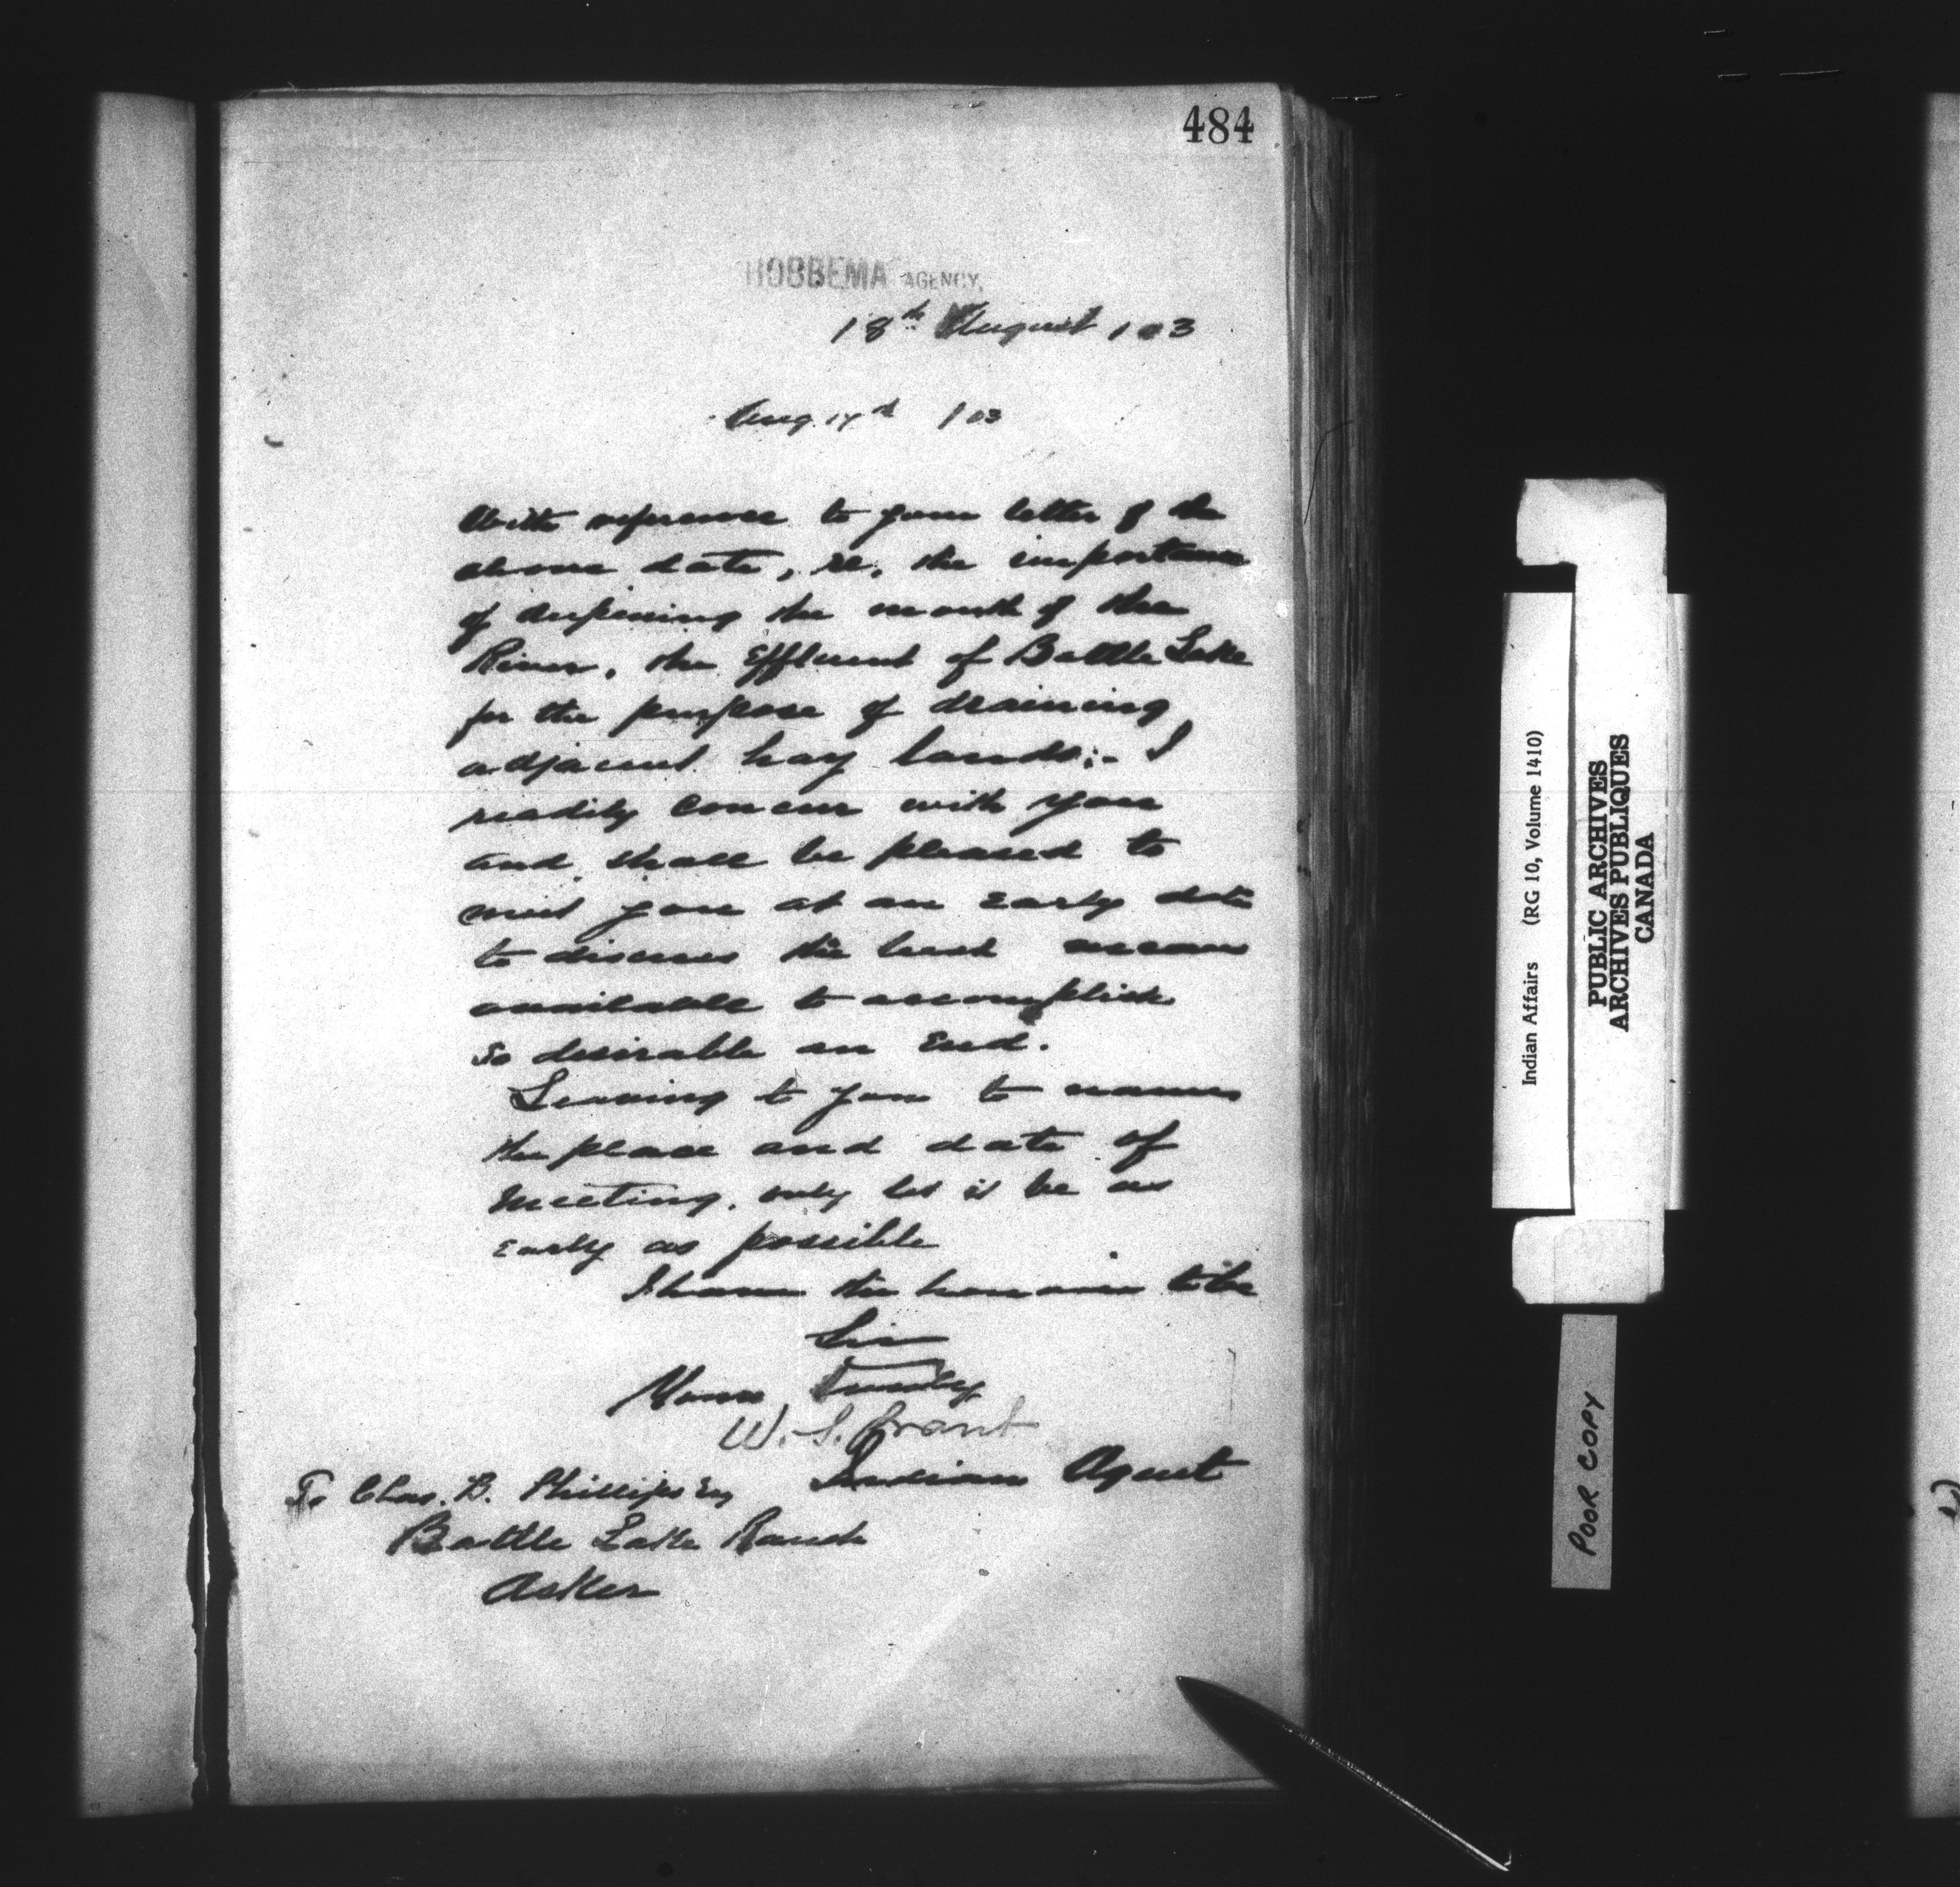 484
HOBBEMA AGENCY,
18th August 103
Aug. 17th 103
With reference to your letter of the
above date, re, the importance
of deepening the mouth of the
River, the Effluent of Battle Lake
for the purpose of draining
adjacent hay lands;- I
readily concur with you
and shall be pleased to
meet you at an Early date
to discuss the best means
available to accomplish
so desirable an End.
Leaving to you to name
the place and date of
meeting, only let it be as
Early as possible
I have the honour to be
Sir
Yours Truly
W. S. Grant
Indian Agent
To Chas. B. Phillips Esq
Battle Lake Ranch
Asker
Indian Affairs (RG 10, Volume 1410)
PUBLIC ARCHIVES
ARCHIVES PUBLIQUES
CANADA
POOR COPY